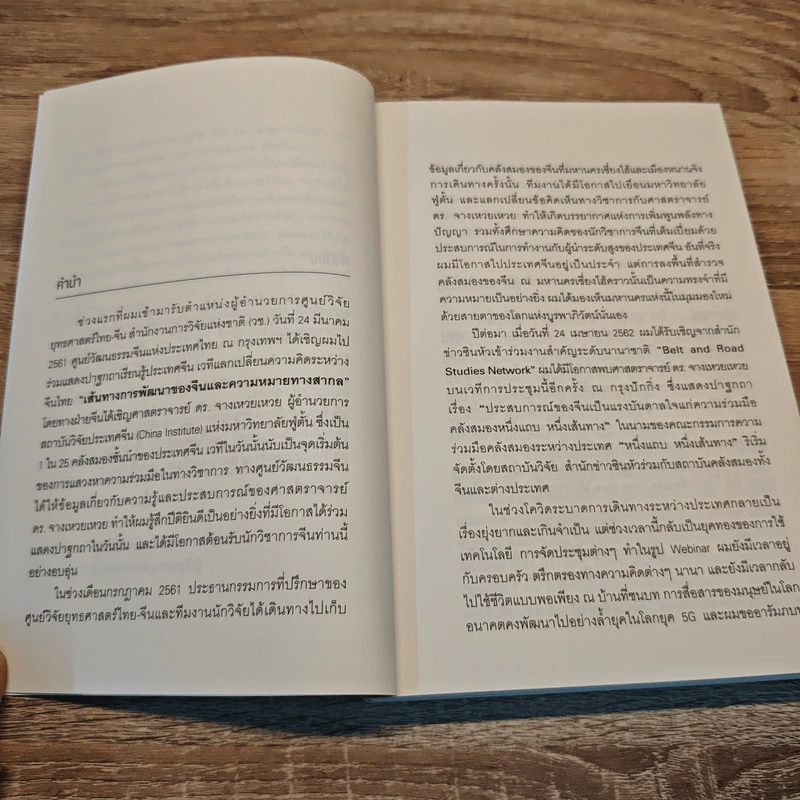 คำนำ
ช่วงแรกที่ผมเข้ามารับตำแหน่งผู้อำนวยการศูนย์วิจัย
ยุทธศาสตร์ไทย-จีน สำนักงานการวิจัยแห่งชาติ (วช.) วันที่ 24 มีนาคม
2561 ศูนย์วัฒนธรรมจีนแห่งประเทศไทย ณ กรุงเทพฯ ได้เชิญผมไป
ร่วมแสดงปาฐกถาเรียนรู้ประเทศจีน เวทีแลกเปลี่ยนความคิดระหว่าง
จีนไทย "เส้นทางการพัฒนาของจีนและความหมายทางสากล"
โดยทางฝ่ายจีนได้เชิญศาสตราจารย์ ดร. จางเหวยเหวย ผู้อำนวยการ
สถาบันวิจัยประเทศจีน (China Institute) แห่งมหาวิทยาลัยฟู่ตั้น ซึ่งเป็น
1 ใน 25 คลังสมองชั้นนำของประเทศจีน เวทีในวันนั้นนับเป็นจุดเริ่มต้น
ของการแสวงหาความร่วมมือในทางวิชาการ ทางศูนย์วัฒนธรรมจีน
ได้ให้ข้อมูลเกี่ยวกับความรู้และประสบการณ์ของศาสตราจารย์
ดร. จางเหวยเหวย ทำให้ผมรู้สึกปีติยินดีเป็นอย่างยิ่งที่มีโอกาสได้ร่วม
แสดงปาฐกถาในวันนั้น และได้มีโอกาสต้อนรับนักวิชาการจีนท่านนี้
อย่างอบอุ่น
ในช่วงเดือนกรกฎาคม 2561 ประธานกรรมการที่ปรึกษาของ
ศูนย์วิจัยยุทธศาสตร์ไทย-จีนและทีมงานนักวิจัยได้เดินทางไปเก็บ
ข้อมูลเกี่ยวกับคลังสมองของจีนที่มหานครเซี่ยงไฮ้และเมืองหนานจิง
การเดินทางครั้งนั้น ทีมงานได้มีโอกาสไปเยือนมหาวิทยาลัย
ฟู่ตั้น และแลกเปลี่ยนข้อคิดเห็นทางวิชาการกับศาสตราจารย์
ดร. จางเหวยเหวย ทำให้เกิดบรรยากาศแห่งการเพิ่มพูนพลังทาง
ปัญญา รวมทั้งศึกษาความคิดของนักวิชาการจีนที่เต็มเปี่ยมด้วย
ประสบการณ์ในการทำงานกับผู้นำระดับสูงของประเทศจีน อันที่จริง
ผมมีโอกาสไปประเทศจีนอยู่เป็นประจำ แต่การลงพื้นที่สำรวจ
คลังสมองของจีน ณ มหานครเซี่ยงไฮ้คราวนั้นเป็นความทรงจำที่มี
ความหมายเป็นอย่างยิ่ง ผมได้มองเห็นมหานครแห่งนี้ในมุมมองใหม่
ด้วยสายตาของโลกแห่งบูรพาภิวัตน์นั่นเอง
ปีต่อมา เมื่อวันที่ 24 เมษายน 2562 ผมได้รับเชิญจากสำนัก
ข่าวซินหัวเข้าร่วมงานสำคัญระดับนานาชาติ "Belt and Road
Studies Network" ผมได้มีโอกาสพบศาสตราจารย์ ดร. จางเหวยเหวย
บนเวทีการประชุมนี้อีกครั้ง ณ กรุงปักกิ่ง ซึ่งแสดงปาฐกถา
เรื่อง "ประสบการณ์ของจีนเป็นแรงบันดาลใจแก่ความร่วมมือ
คลังสมองหนึ่งแถบ หนึ่งเส้นทาง" ในนามของคณะกรรมการความ
ร่วมมือคลังสมองระหว่างประเทศ "หนึ่งแถบ หนึ่งเส้นทาง" ริเริ่ม
จัดตั้งโดยสถาบันวิจัย สำนักข่าวซินหัวร่วมกับสถาบันคลังสมองทั้ง
จีนและต่างประเทศ
ในช่วงโควิดระบาดการเดินทางระหว่างประเทศกลายเป็น
เรื่องยุ่งยากและเกินจำเป็น แต่ช่วงเวลานี้กลับเป็นยุคทองของการใช้
เทคโนโลยี การจัดประชุมต่างๆ ทำในรูป Webinar ผมยังมีเวลาอยู่
กับครอบครัว ตรึกตรองทางความคิดต่างๆ นานา และยังมีเวลากลับ
ไปใช้ชีวิตแบบพอเพียง ณ บ้านที่ชนบท การสื่อสารของมนุษย์ในโลก
อนาคตคงพัฒนาไปอย่างล้ำยุคในโลกยุค 5G และผมขออารัมภบท